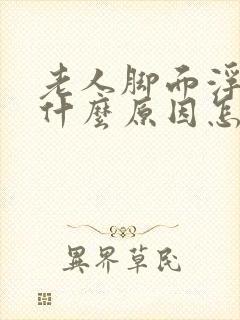 老人脚面浮
什麼原因怎
異界草民